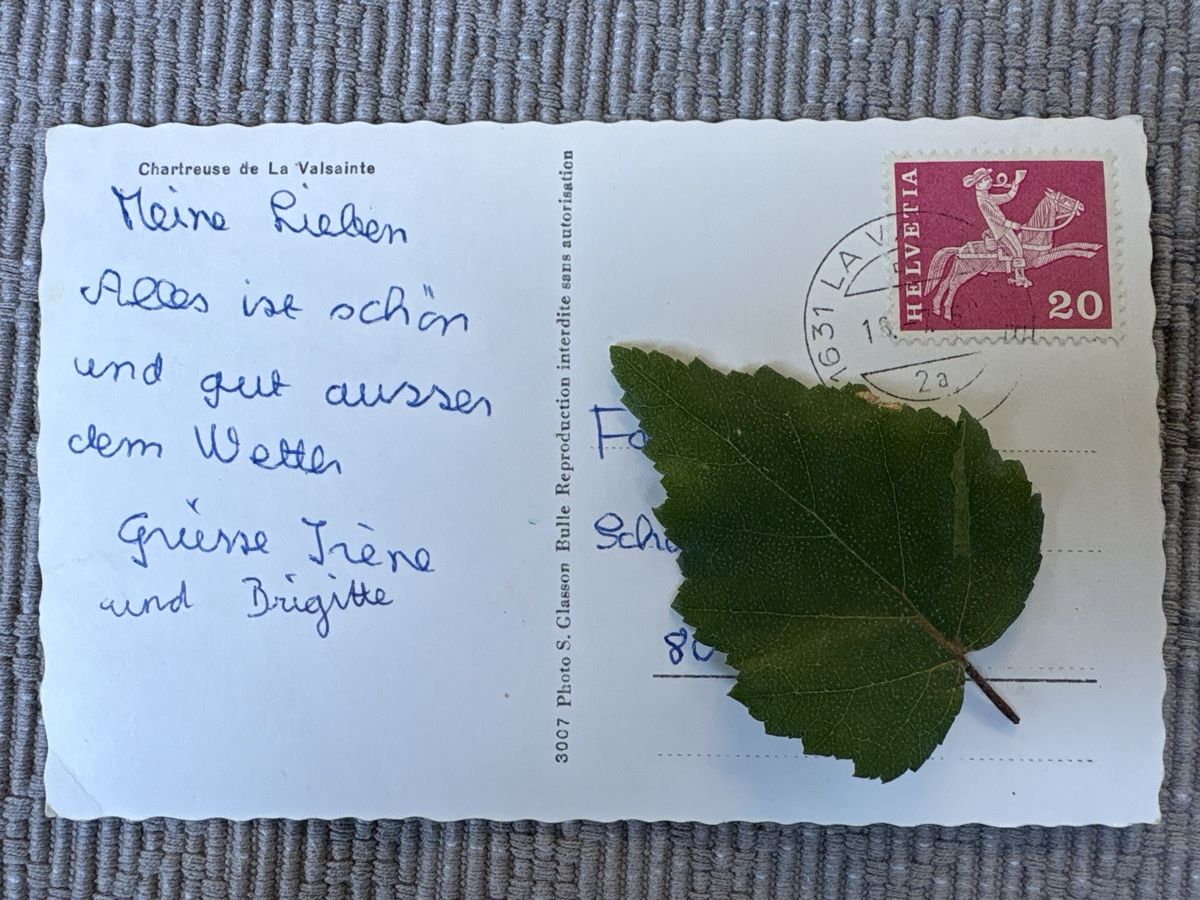 Chartreuse de La Valsainte
Meine Lieben
Alles ist schön
und gut ausser
dem Wetter
Grüsse Irène
und Brigitte
3007 Photo S. Glasson Bulle Reproduction interdite sans autorisation
HELVETIA
20
1631 LA V
2a
Fa
Sch
80